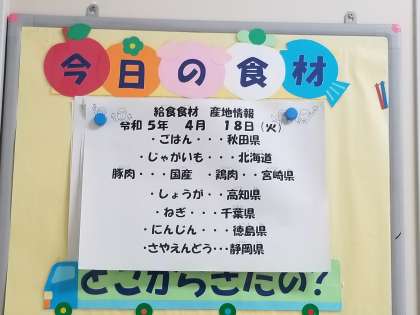 今日の食材
給食食材　産地情報
令和 5年　4月　18日（火）
・ごはん・・・秋田県
・じゃがいも・・・北海道
豚肉・・・国産　・鶏肉・・宮崎県
・しょうが・・高知県
・ねぎ・・・千葉県
・にんじん・・・徳島県
・さやえんどう・・・静岡県
どこからきたの？